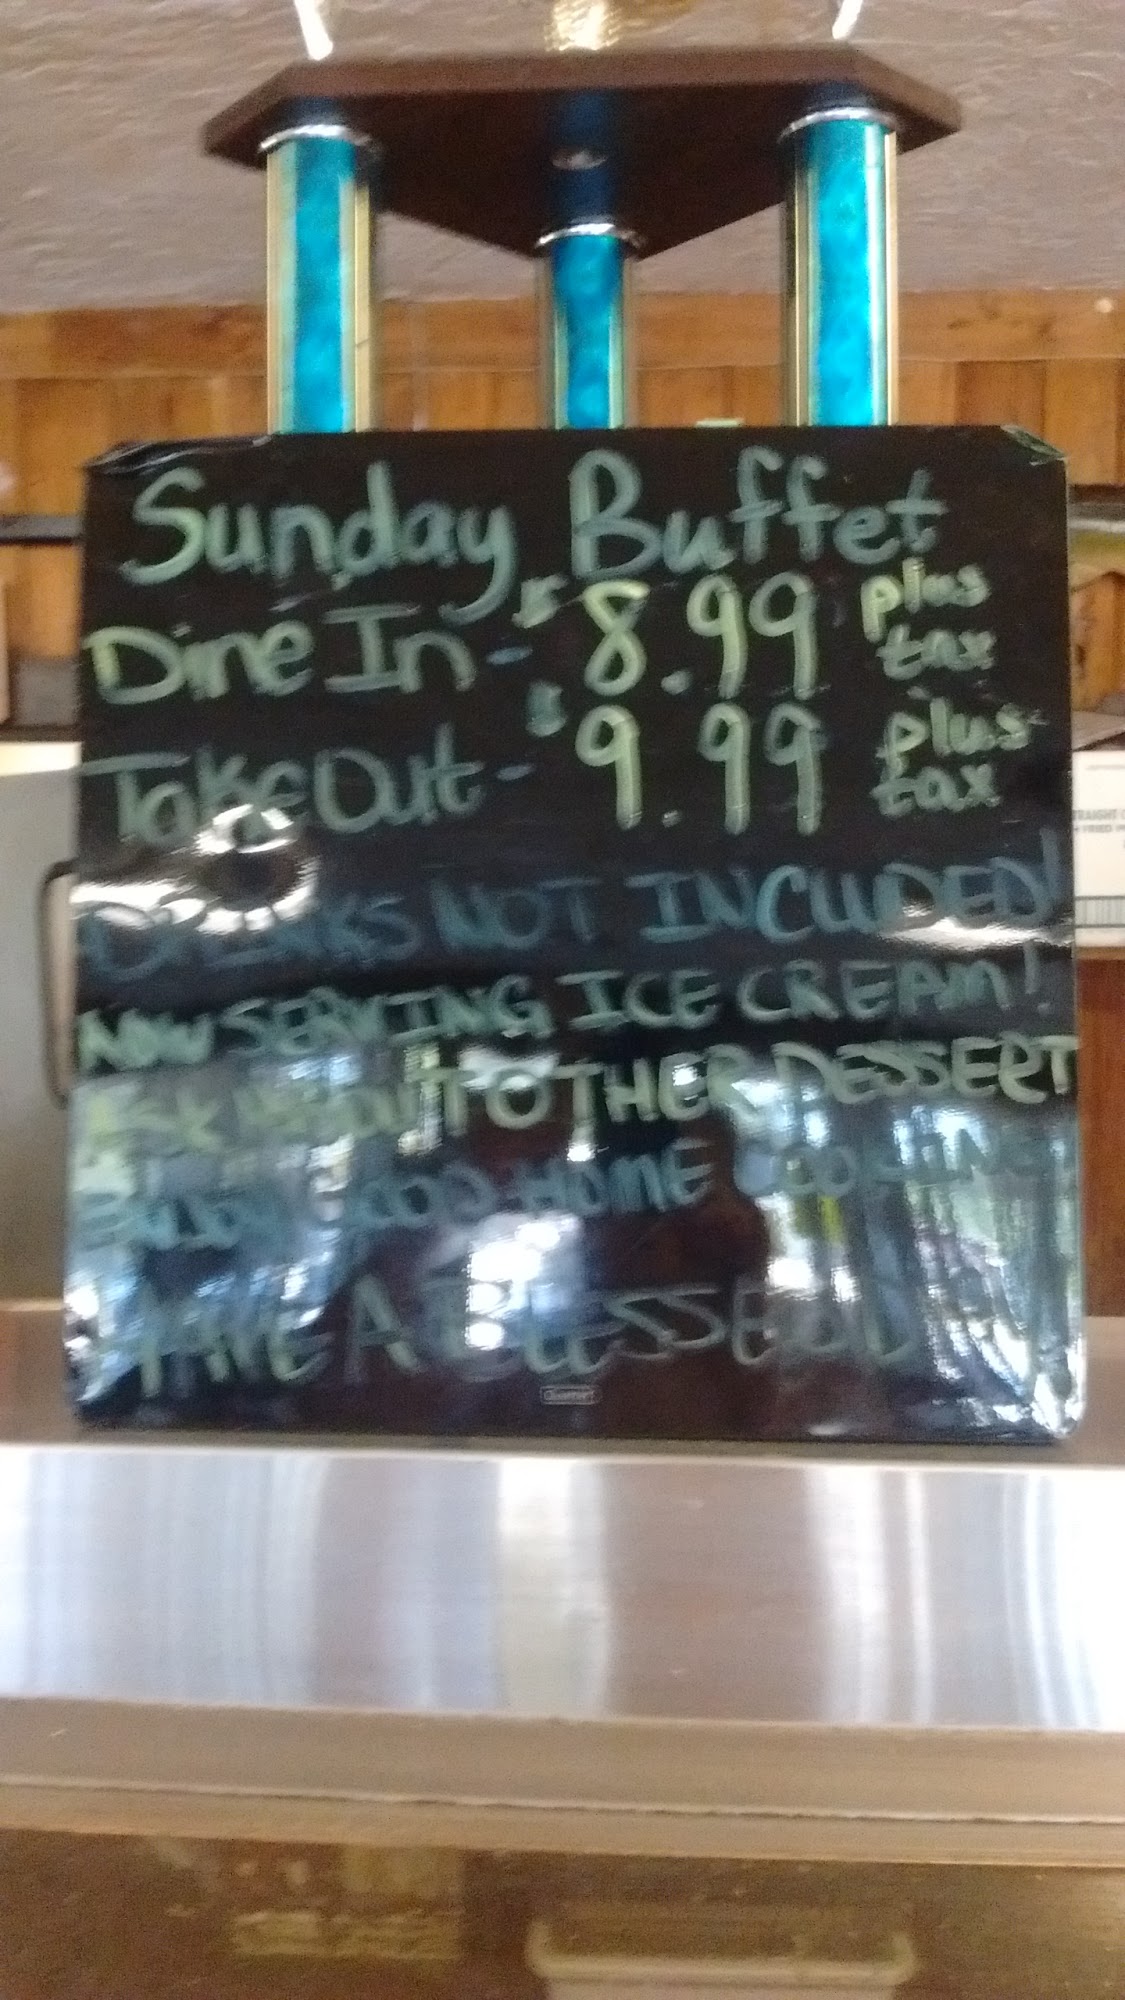 Sunday Buffet
Dine In - $8.99 plus tax
TakeOut - $9.99 plus tax
DRINKS NOT INCLUDED!
NOW SERVING ICE CREAM!
ASK ABOUT OTHER DESSERT
ENJOY GOOD HOME COOKING
HAVE A BLESSED